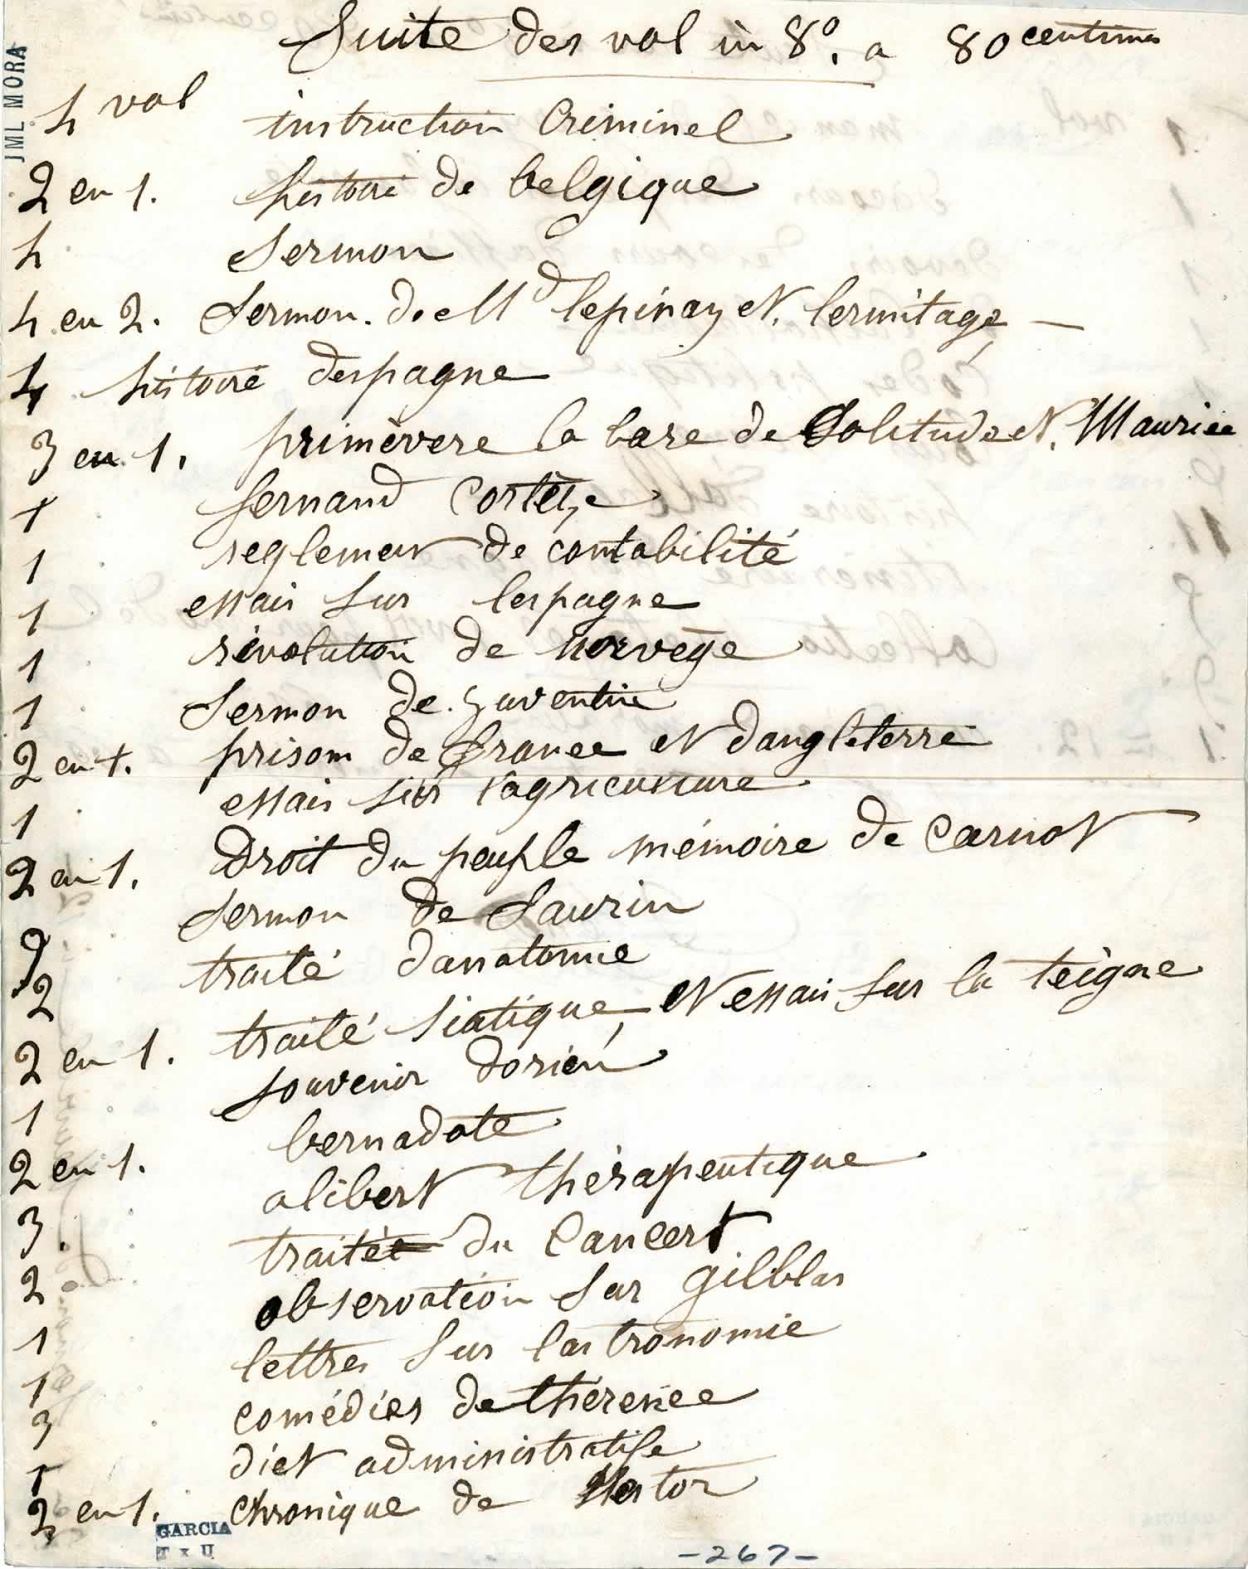 Suite des vol in 8º. a 80 centimes
JML MORA
4 val instruction Criminel
2 en 1. histoire de belgique
4 Sermon
4 en 2. Sermon. de Md lepinay et. lermitage
4 histoire despagne
3 en 1. primevere la base de Solitude et. Maurice
1 fernand Cortèz
1 reglement de contabilité
1 essais sur lespagne
1 révolution de norvege
1 Sermon de
2 en 1. prison de france et dangleterre
1 essais sur l'agriculture
2 en 1. Droit du peuple mémoire de Carnot
9 Sermon de Saurin
2 traité danatomie
2 en 1. traité siatique, et essais sur la teigne
1 souvenir dorient
2 en 1. bernadote
3. alibert thérapeutique
2 traité du Cancert
1 observation sur gilblas
1 lettres sur lastronomie
3 comédies de thérence
1 dict administratife
2 en 1. chronique de Nestor
GARCIA
T x U
-267-